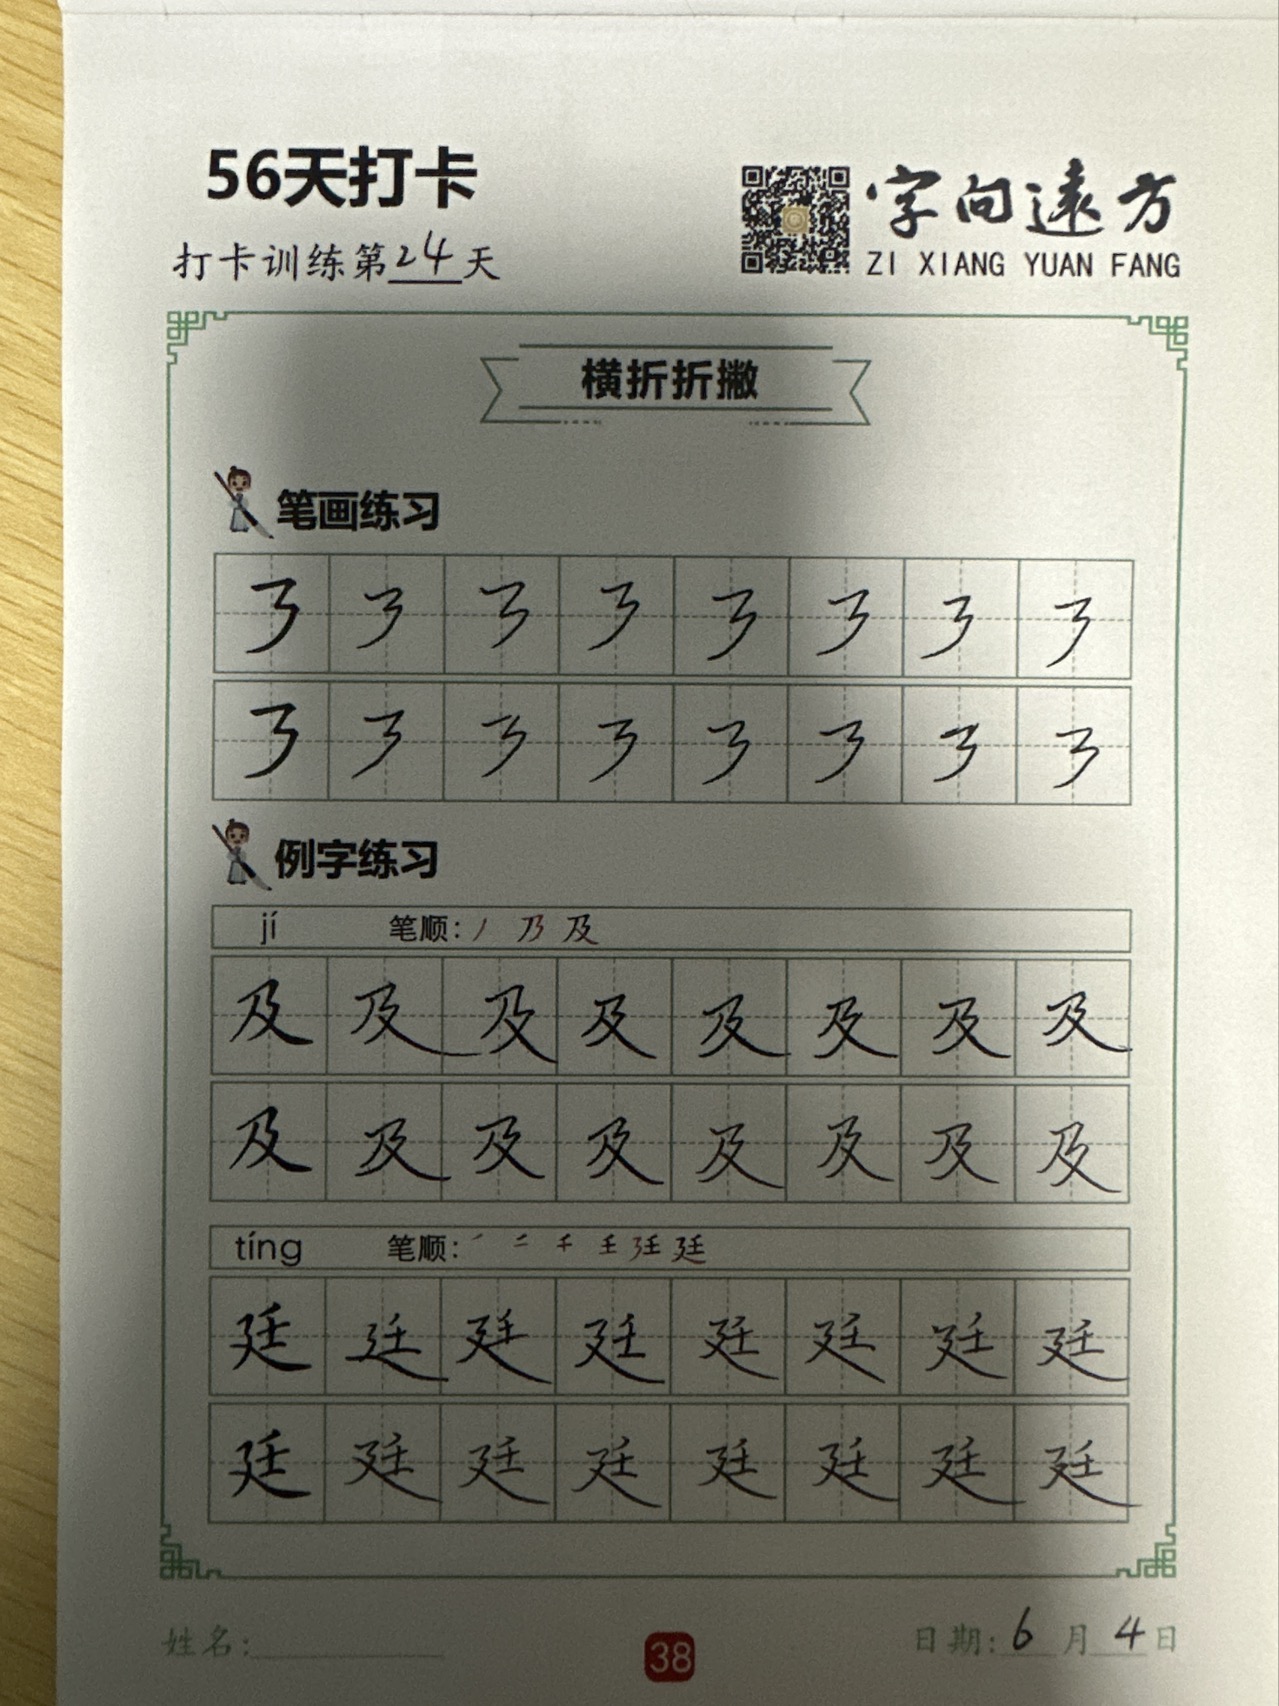 56天打卡
打卡训练第24天
字向遠方
ZI XIANG YUAN FANG
横折折撇
笔画练习
㇋ ㇋ ㇋ ㇋ ㇋ ㇋ ㇋ ㇋
㇋ ㇋ ㇋ ㇋ ㇋ ㇋ ㇋ ㇋
例字练习
jí 笔顺: 丿 乃 及
及 及 及 及 及 及 及 及
及 及 及 及 及 及 及 及
tíng 笔顺: ㇒ 二 千 壬 廷 廷
廷 廷 廷 廷 廷 廷 廷 廷
廷 廷 廷 廷 廷 廷 廷 廷
姓名:
38
日期: 6月4日